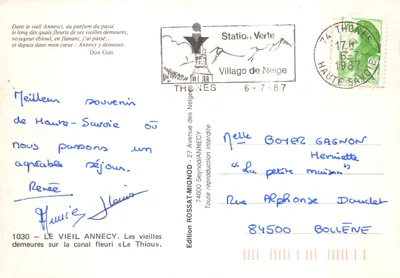 Dans le vieil Annesci, au parfum du passé
le long des quais fleuris de ses vieilles demeures,
voyageur ébloui, en flanant, j'ai passé...
et depuis dans mon cœur : Annecy y demeure.
Don Gim
Station Verte
Village de Neige
THONES 6-7-87
74 THONES
17H
6-7
1987
HAUTE SAVOIE
Meilleur souvenir
de Haute-Savoie où
nous passons un
agréable séjour.
Renée
Edition ROSSAT-MIGNOD - 27 Avenue des Neiges
74600 Seynod/ANNECY
Toute reproduction interdite
Melle BOYER GAGNON
Henriette
"La petite maison"
Rue Alphonse Daudet
84500 BOLLÈNE
1030 – LE VIEIL ANNECY. Les vieilles
demeures sur la canal fleuri «Le Thiou».